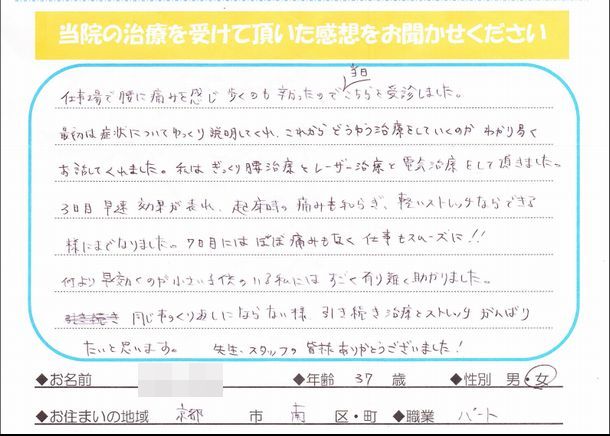 当院の治療を受けて頂いた感想をお聞かせください
当日
仕事場で腰に痛みを感じ歩くのも辛かったのでこちらを受診しました。
最初は症状についてゆっくり説明してくれ、これからどうゆう治療をしていくのかわかり易く
お話してくれました。私はぎっくり腰治療とレーザー治療と電気治療をして頂きました。
3日目早速効果が表れ、起床時の痛みも和らぎ、軽いストレッチならできる
様にまでなりました。7日目にはほぼ痛みもなく仕事もスムーズに!!
何より早効くのが小さい子供のいる私にはすごく有り難く助かりました。
引き続き 同じぎっくり腰にならない様、引き続き治療とストレッチがんばり
たいと思います。 先生、スタッフの皆様ありがとうございました!
◆お名前 ◆年齢 37 歳 ◆性別 男・女
◆お住まいの地域 京都 市 南 区・町 ◆職業 パート